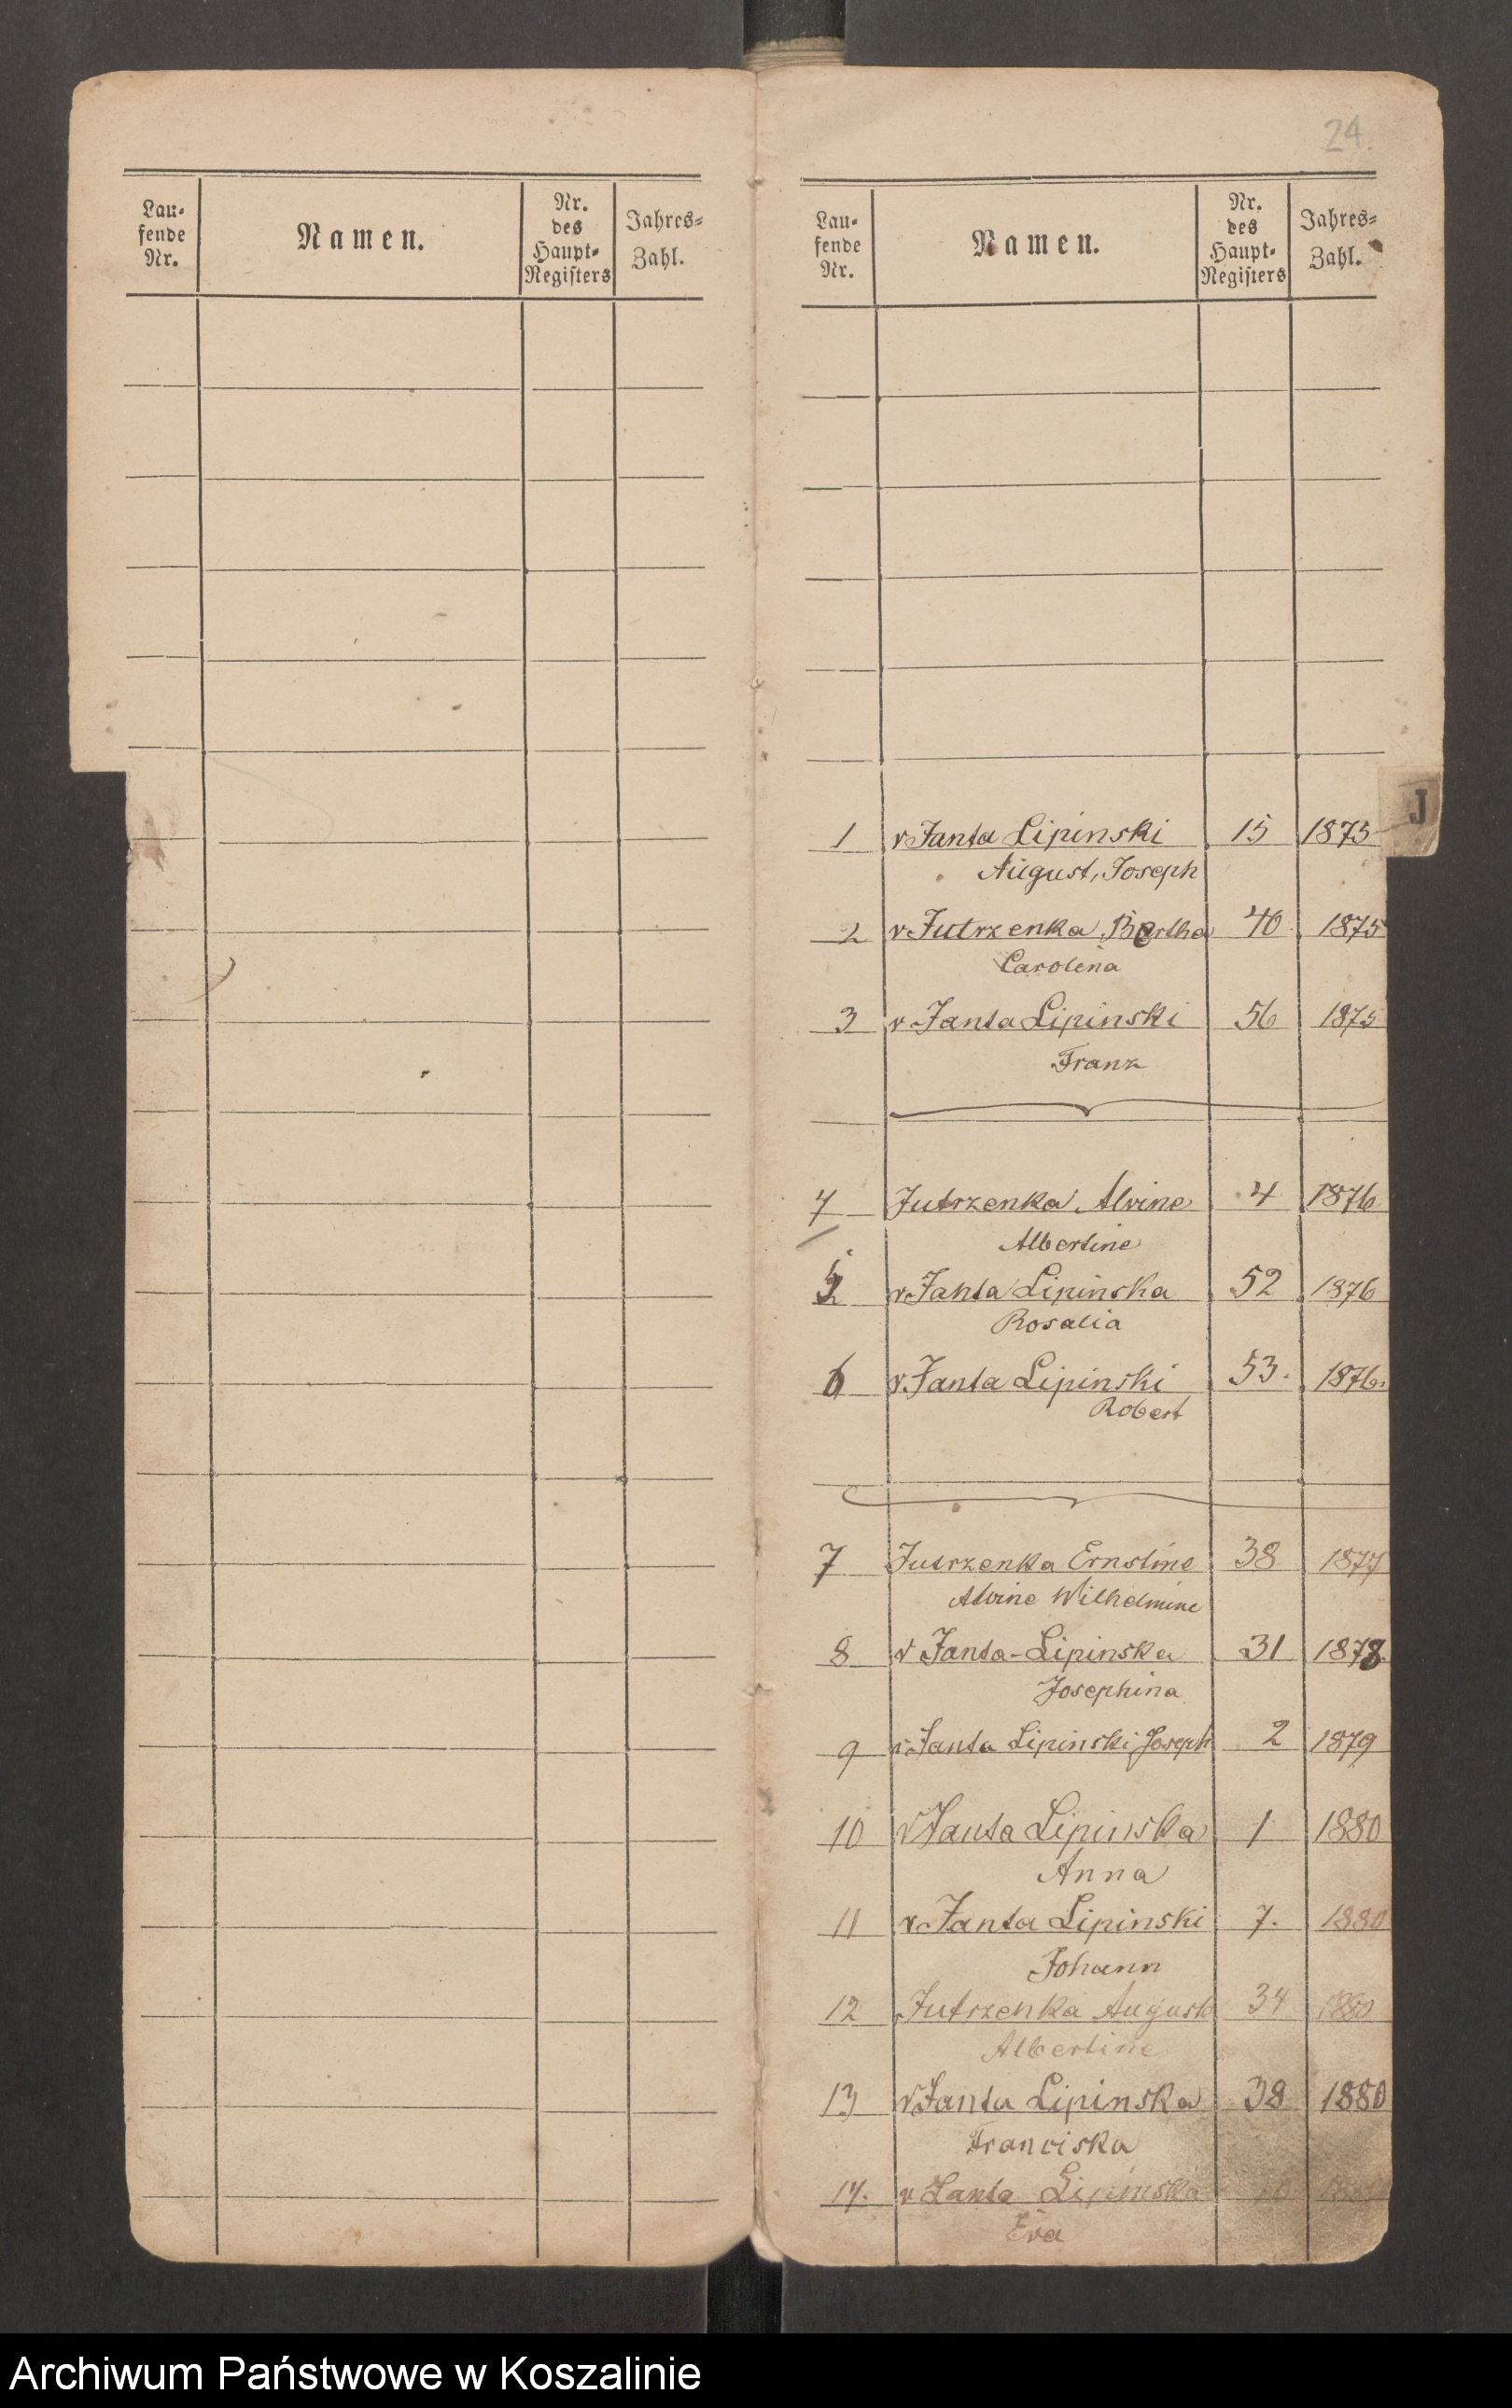 24.
Lau-
fende
Nr.
Namen.
Nr.
des
Haupt-
Registers
Jahres-
Zahl.
Lau-
fende
Nr.
Namen.
Nr.
des
Haupt-
Registers
Jahres-
Zahl.
J
1 v Janta Lipinski 15 1875
August, Joseph
2 v Jutrzenka Bertha 40 1875
Carolina
3 v Janta Lipinski 56 1875
Franz
4 Jutrzenka Alvine 4 1876
Albertine
5 v Janta Lipinska 52 1876
Rosalia
6 v Janta Lipinski 53. 1876.
Robert
7 Jutrzenka Ernstine 38 1877
Alvine Wilhelmine
8 v Janta-Lipinska 31 1878.
Josephina
9 v Janta Lipinski Joseph 2 1879
10 v Janta Lipinska 1 1880
Anna
11 v Janta Lipinski 7. 1880
Johann
12 Jutrzenka August 34 1880
Albertine
13 v Janta Lipinska 38 1880
Franciska
14. v Janta Lipinska
Eva
Archiwum Państwowe w Koszalinie